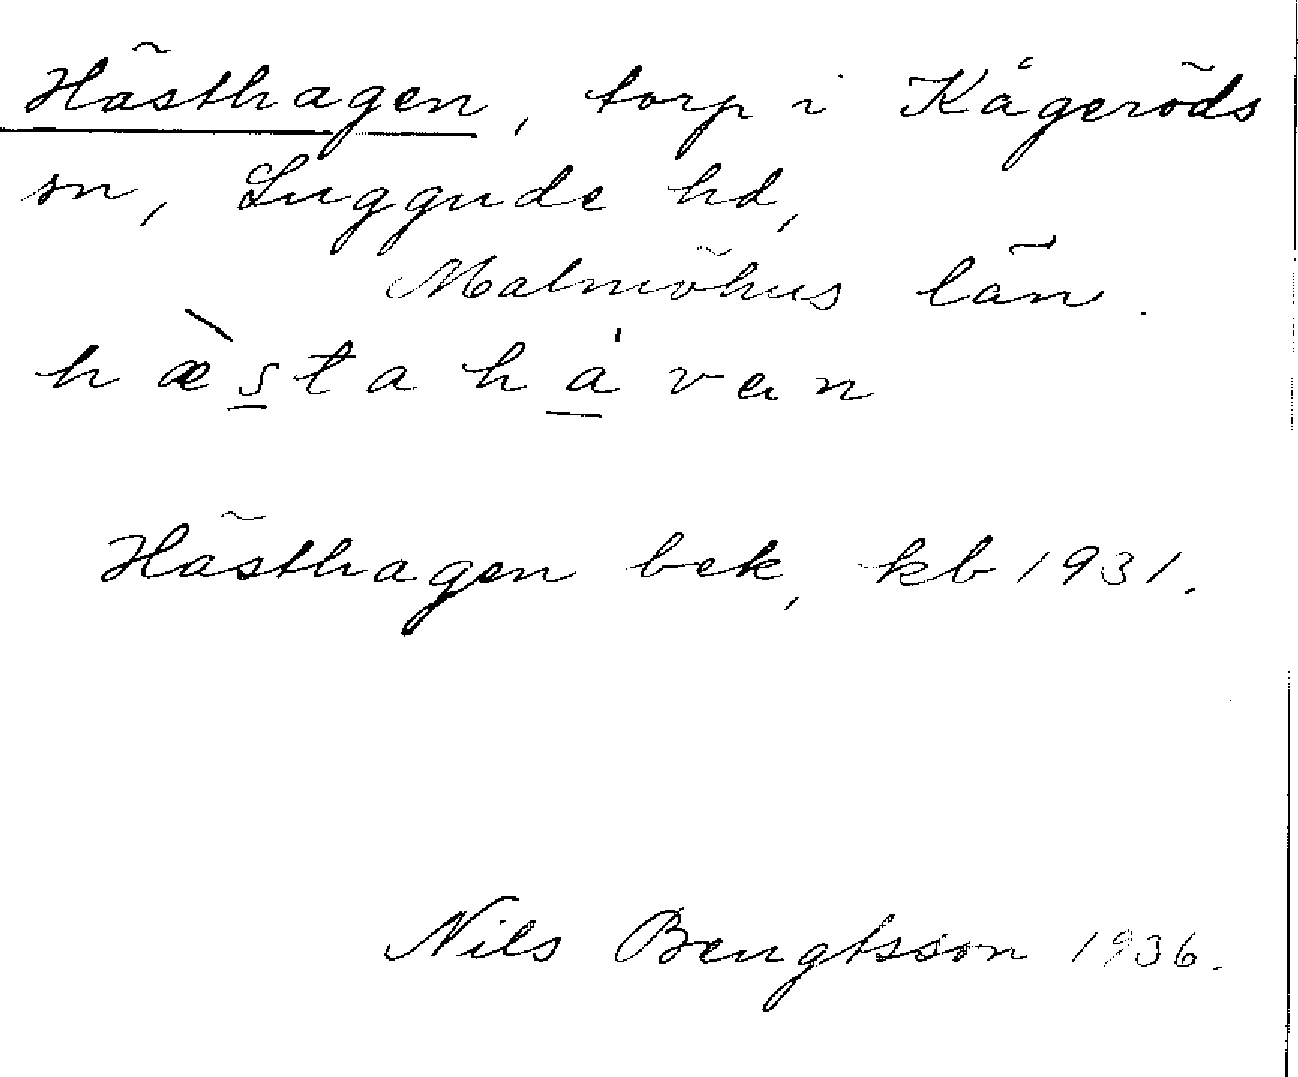 Hästhagen, torp i Kågeröds
sn, Luggude hd,
Malmöhus län.
hæ̀stahávan
Hästhagen bek, kb 1931.
Nils Bengtsson 1936.